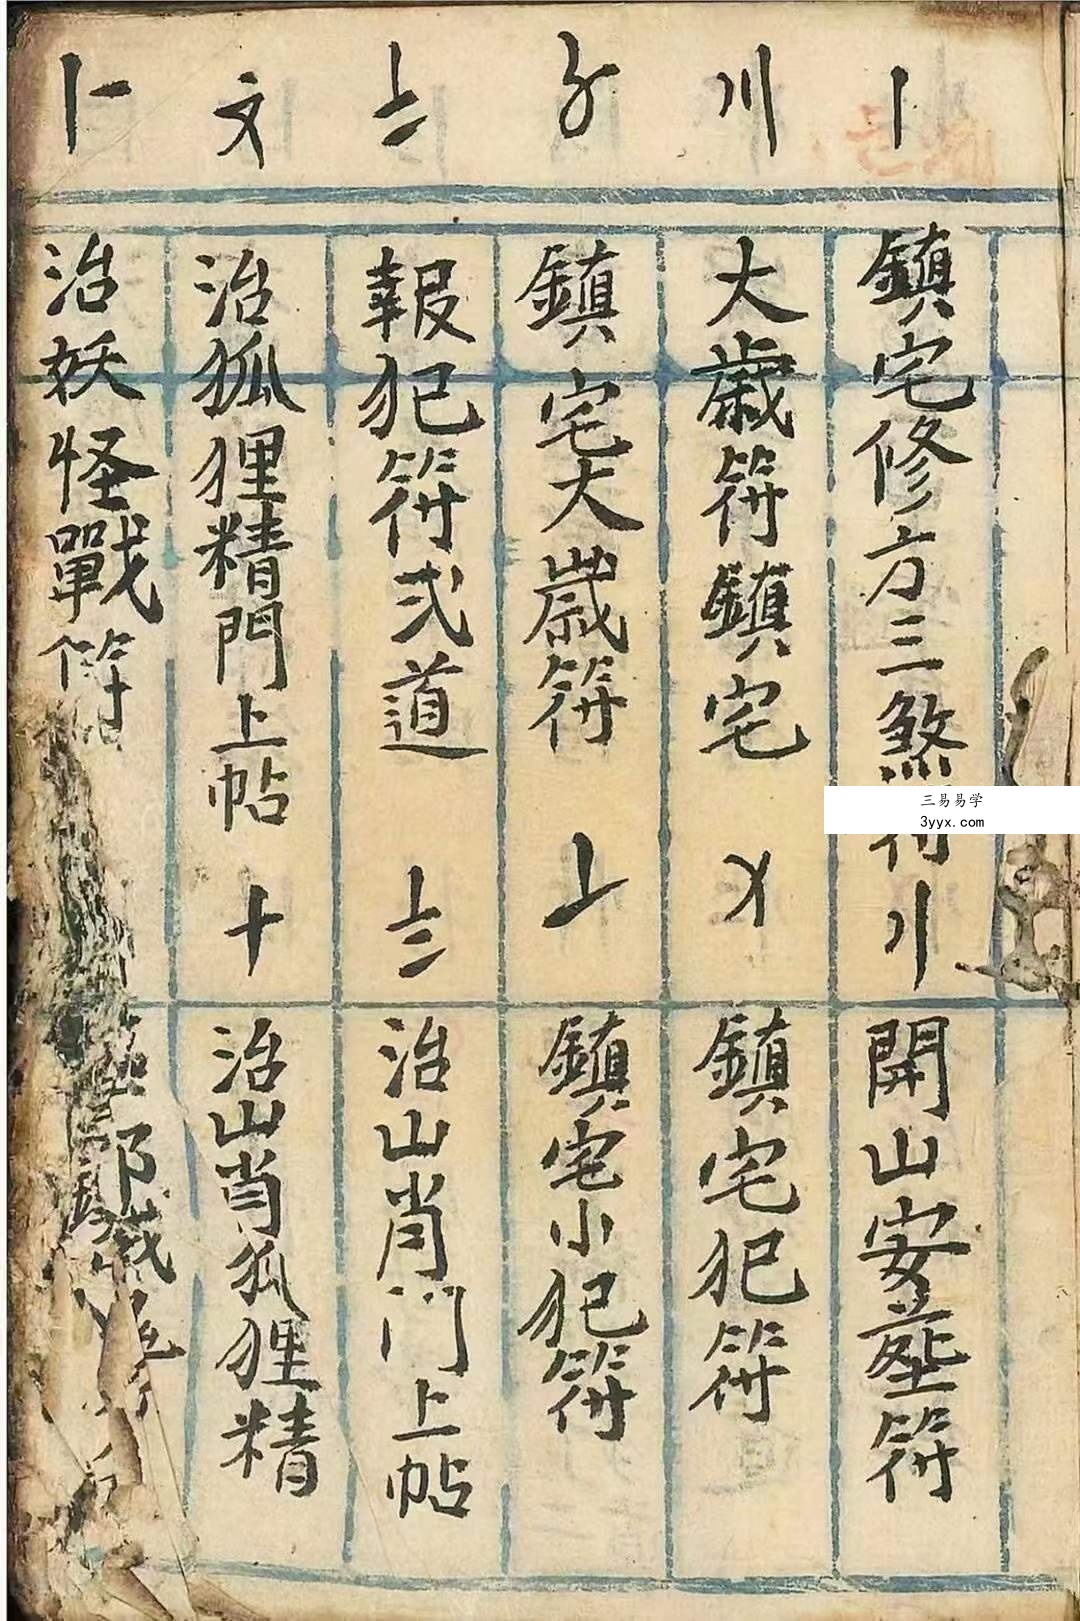 〡
鎮宅修方三煞符
〢
開山安塟符
〣
大歲符鎮宅
〤
鎮宅犯符
〥
鎮宅大歲符
〦
鎮宅小犯符
〧
報犯符弍道
〨
治山肖门上帖
〩
治狐狸精門上帖
十
治山肖狐狸精
〡一
治妖怪戰符
三易易学
3yyx.com